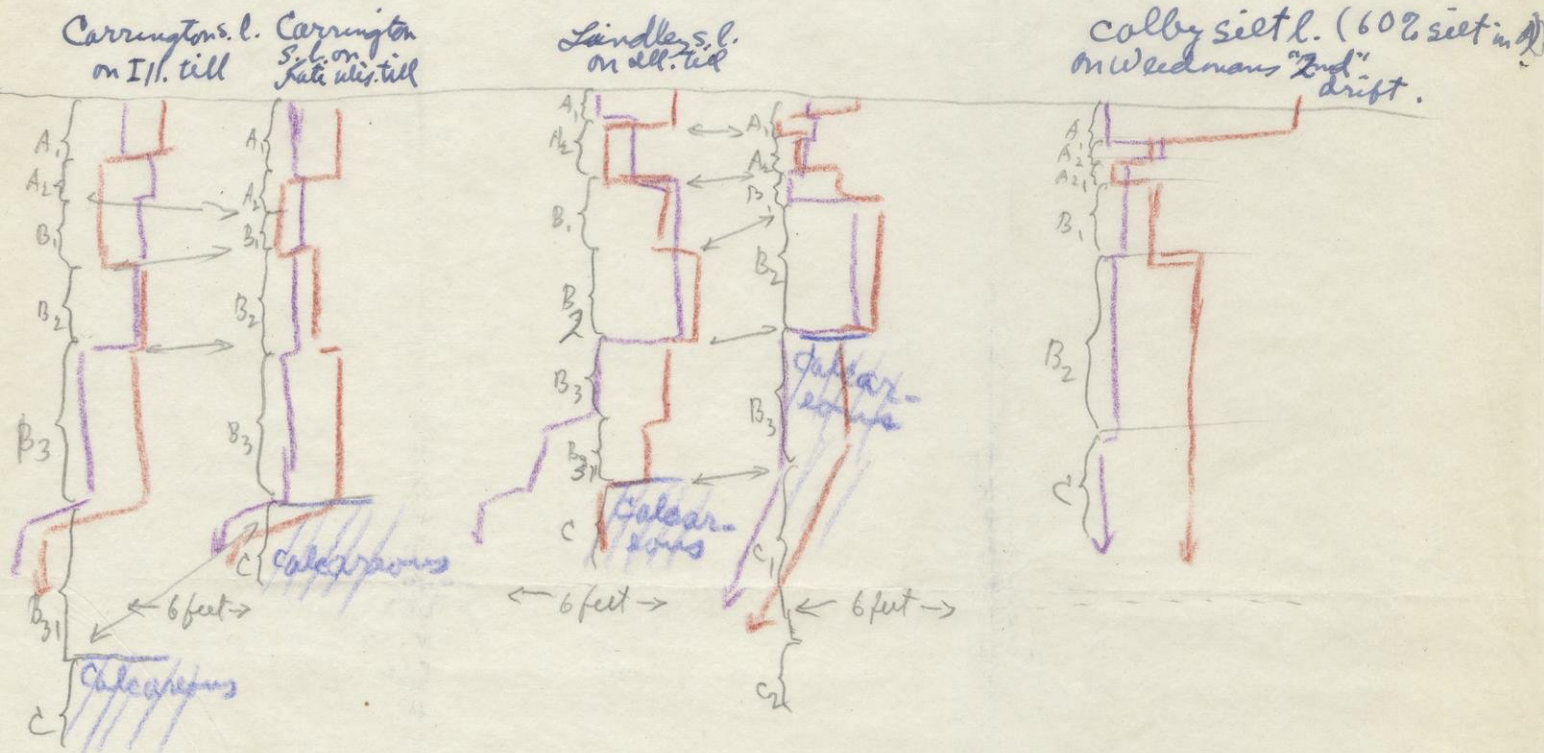 Carrington s.l.
on Ill. till
Carrington
s.l. on
till
Lindley s.l.
on Ill. till
Colby silt l. (60% silt in A)
on Weidmans "2nd"
drift.
A1
A2
B1
B2
B3
B31
C
Calcareous
A1
A2
B1
B2
B3
C
Calcareous
← 6 feet →
A1
A2
B1
B2
B3
B31
C
Calcar-
eous
← 6 feet →
A1
A2
B1
B2
B3
C1
C2
Calcar-
eous
← 6 feet →
A1
A2
A21
B1
B2
C